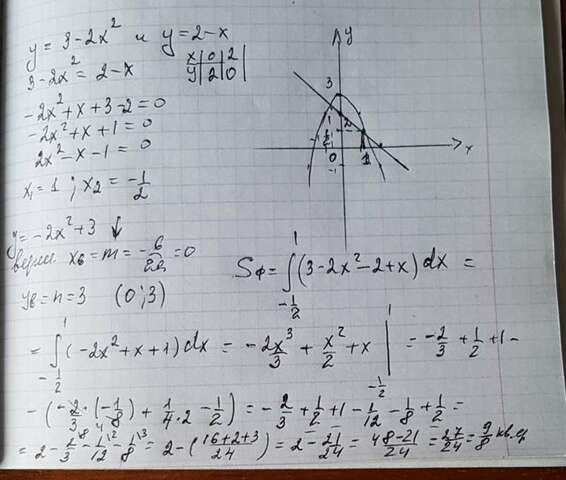 y = 3-2x² и y = 2-x
3-2x² = 2-x
x|0|2
y|2|0
-2x²+x+3-2=0
-2x²+x+1=0
2x²-x-1=0
x₁=1 ; x₂ = -1/2
y
3
2
1
-1/2
0
1
-1
x
y=-2x²+3 ↓
верш. xв=m=-в/2a=0
yв=n=3 (0;3)
Sф=∫_{-1/2}^{1}(3-2x²-2+x)dx =
=∫_{-1/2}^{1}(-2x²+x+1)dx = -2x³/3 + x²/2 + x |_{-1/2}^{1} = -2/3+1/2+1-
-(-2/3·(-1/8)+1/4·2-1/2) = -2/3+1/2+1-1/12-1/8+1/2=
=2-2/3-1/12-1/8=2-(16+2+3/24)=2-21/24=48-21/24=27/24=9/8 кв.ед